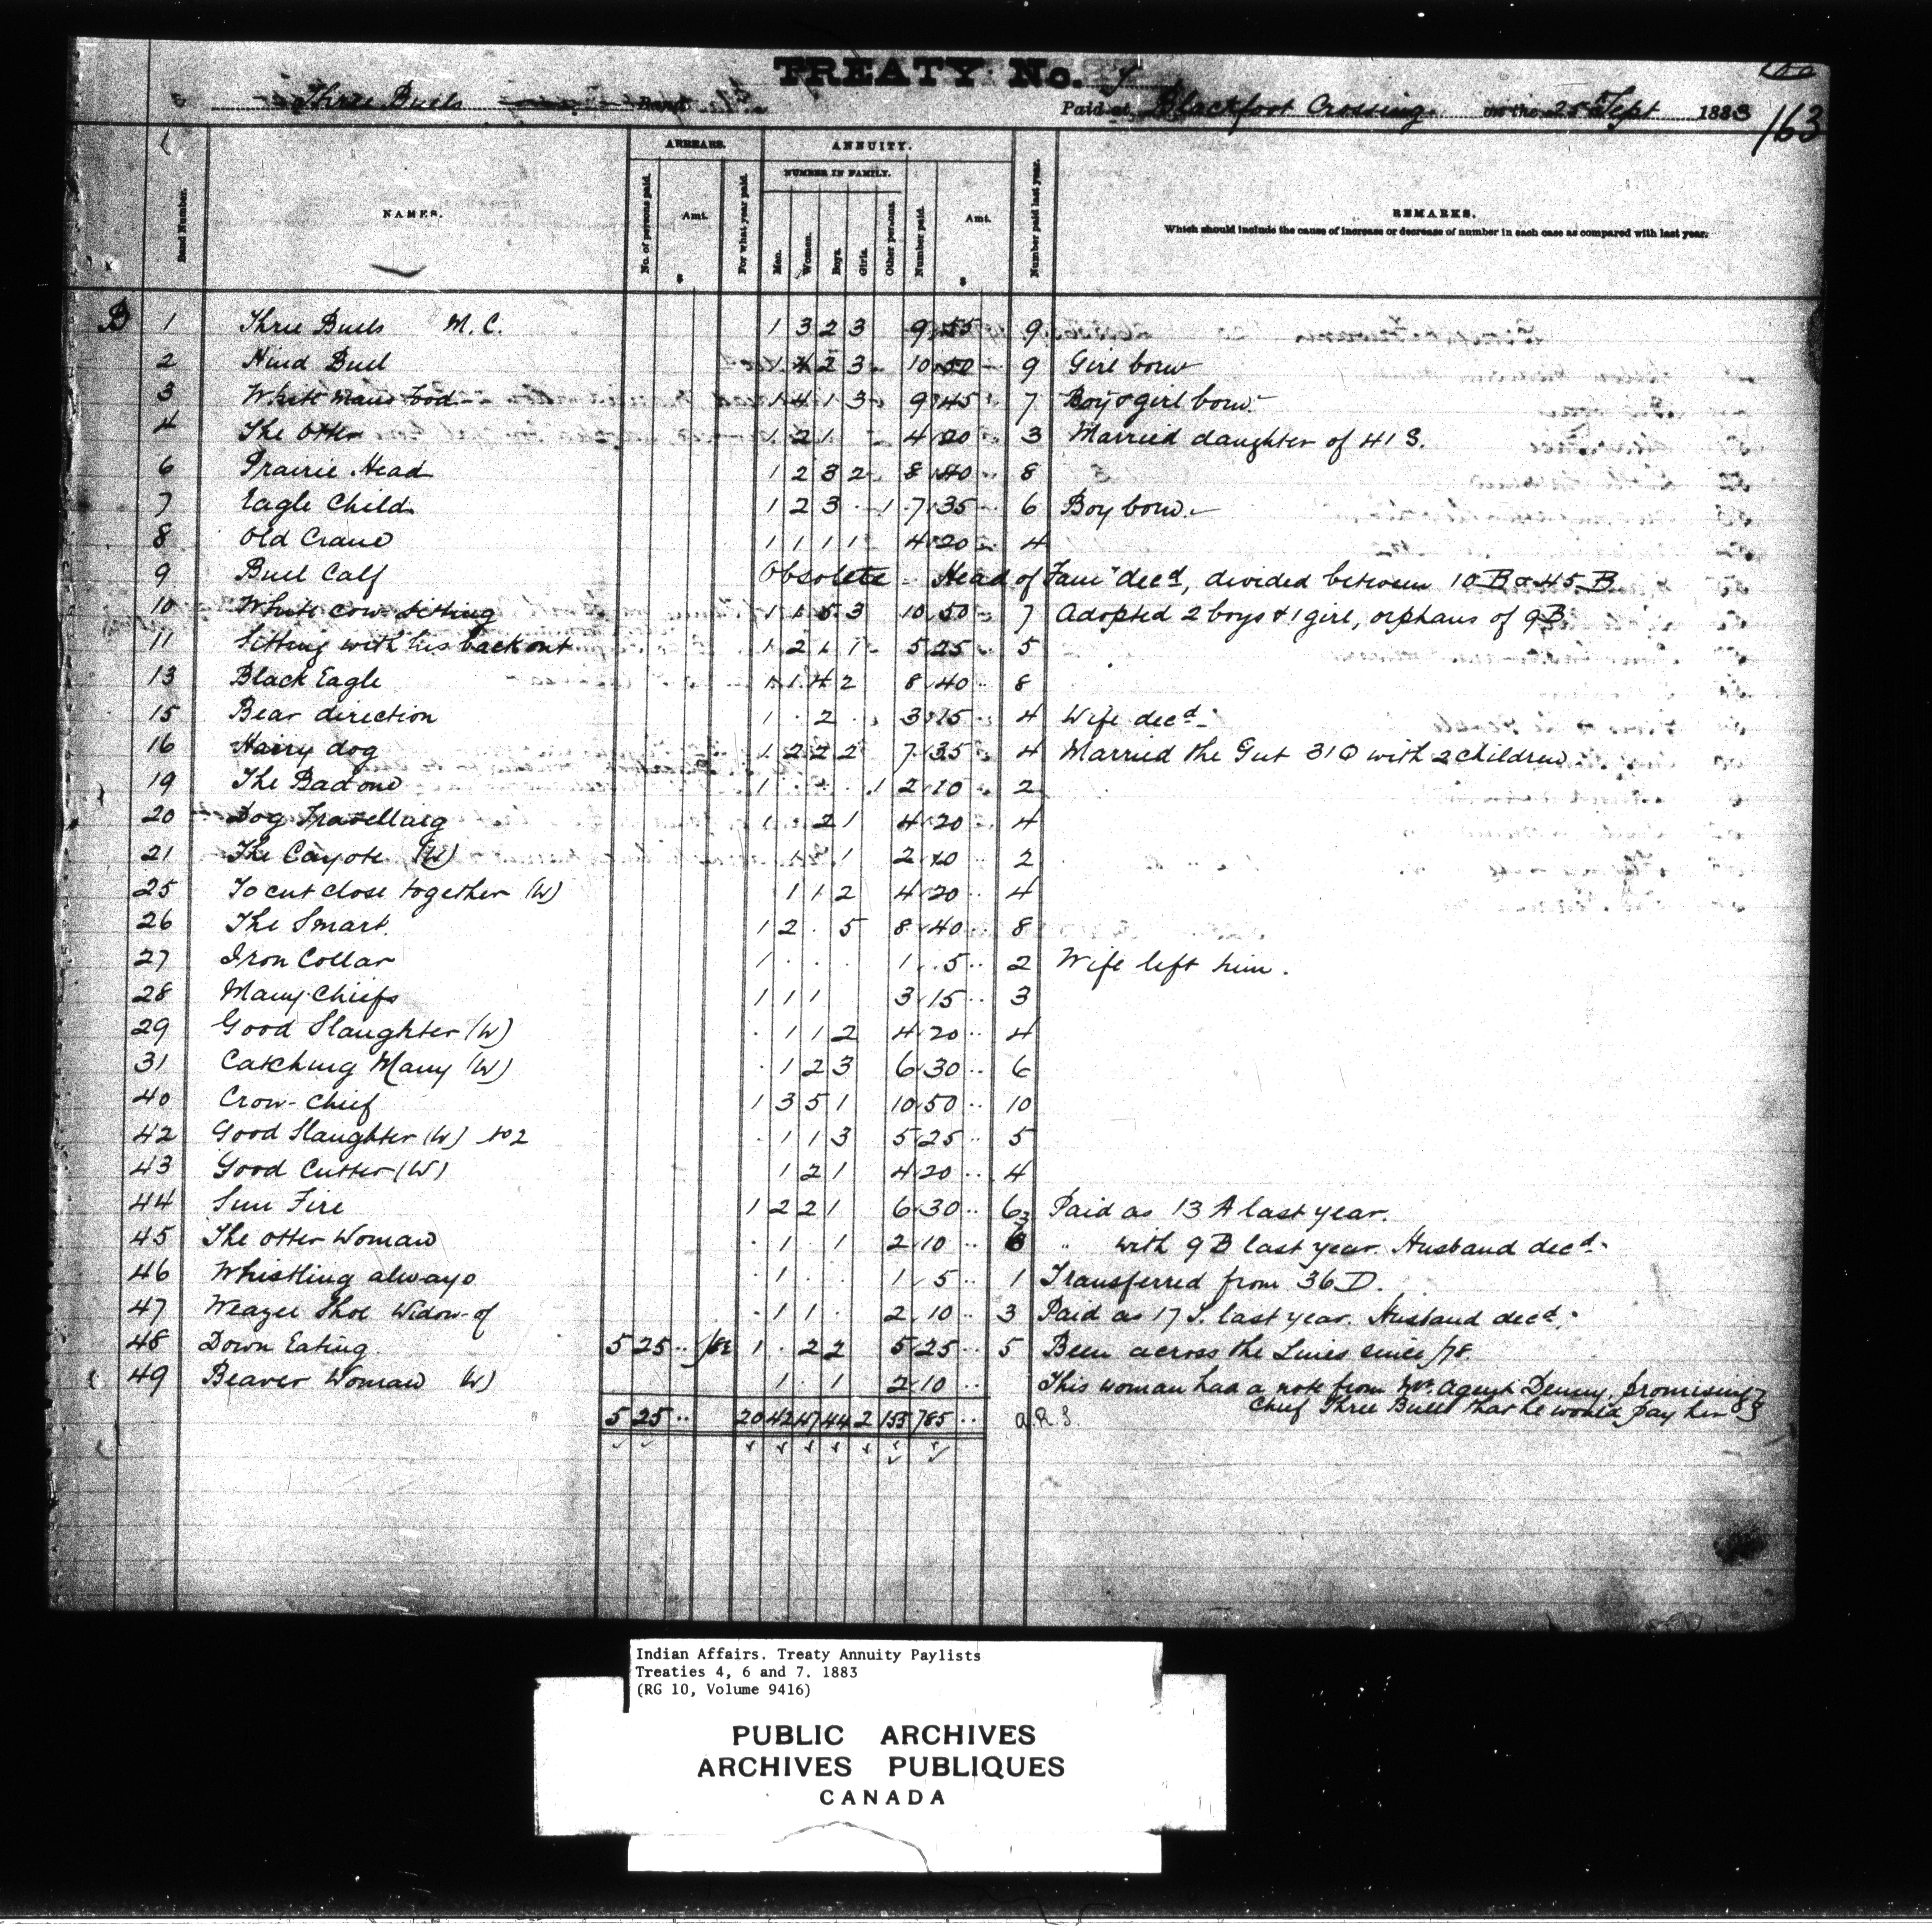 TREATY No. 7
Three Bulls Band. Paid at Blackfoot Crossing on the 25th Sept 1883
163
ARREARS. ANNUITY.
NUMBER IN FAMILY.
Band Number. NAMES. No. of persons paid. Amt. $ For what year paid. Men. Women. Boys. Girls. Other persons. Number paid. Amt. $ Number paid last year. REMARKS.
Which should include the cause of increase or decrease of number in each case as compared with last year.
B 1 Three Bulls M.C. 1 3 2 3 9 55 9
2 Hind Bull 1 4 2 3 10 50 9 Girl born
3 White Mans Food 1 4 1 3 9 45 7 Boy & girl born.
4 The Otter 1 2 1 4 20 3 Married daughter of 41 S.
6 Prairie Head 1 2 3 2 8 40 8
7 Eagle Child 1 2 3 1 7 35 6 Boy born.
8 Old Crane 1 1 1 1 4 20 4
9 Bull Calf Obsolete - Head of Fam" decd, divided between 10 B & 45 B
10 White cow sitting 1 1 5 3 10 50 7 Adopted 2 boys & 1 girl, orphans of 9B
11 Sitting with his back out 1 2 1 1 5 25 5
13 Black Eagle 1 1 4 2 8 40 8
15 Bear direction 1 2 3 15 4 Wife decd
16 Hairy dog 1 2 2 2 7 35 4 Married the Gut 31 Q with 2 children
19 The Bad one 1 1 2 10 2
20 Dog Travelling 1 2 1 4 20 4
21 The Cayote (W) 1 1 2 10 2
25 To cut close together (W) 1 1 2 4 20 4
26 The Smart 1 2 5 8 40 8
27 Iron Collar 1 1 5 2 Wife left him.
28 Many Chiefs 1 1 1 3 15 3
29 Good Slaughter (W) 1 1 2 4 20 4
31 Catching Many (W) 1 2 3 6 30 6
40 Crow-Chief 1 3 5 1 10 50 10
42 Good Slaughter (W) No 2 1 1 3 5 25 5
43 Good Cutter (W) 1 2 1 4 20 4
44 Sun Fire 1 2 2 1 6 30 6 Paid as 13 A last year.
45 The Otter Woman 1 1 2 10 " with 9 B last year. Husband decd.
46 Whistling always 1 1 5 1 Transferred from 36 D.
47 Weazel Shoe Widow of 1 1 2 10 3 Paid as 17 S. last year. Husband decd.
48 Down Eating 5 25 /82 1 2 2 5 25 5 Been across the Lines since /78.
49 Beaver Woman (W) 1 1 2 10 This woman had a note from Mr. Agent Denny, promising
Chief Three Bulls that he would pay her 83
5 25 20 42 47 44 2 155 785 a.R.S.
Indian Affairs. Treaty Annuity Paylists
Treaties 4, 6 and 7. 1883
(RG 10, Volume 9416)
PUBLIC ARCHIVES
ARCHIVES PUBLIQUES
CANADA